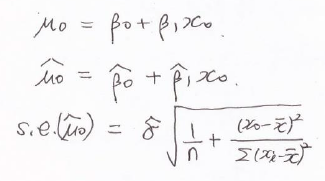 μ₀ = β₀ + β₁x₀.
μ̂₀ = β̂₀ + β̂₁x₀.
s.e.(μ̂₀) = σ̂ √(1/n + (x₀-x̄)²/Σ(xᵢ-x̄)²)